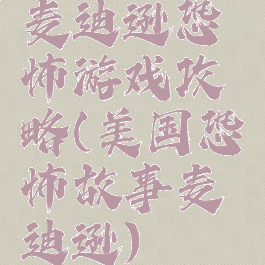 麦迪逊恐
怖游戏攻
略(美国恐
怖故事麦
迪逊)